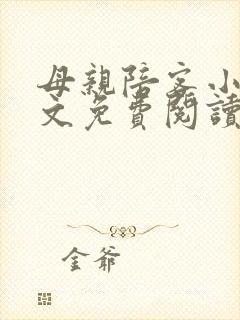 母親陪客小
文免費閱讀
金爺